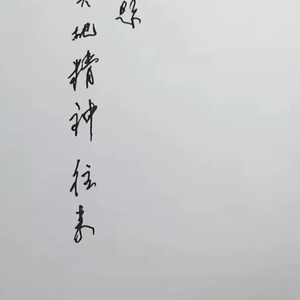 地精神往来